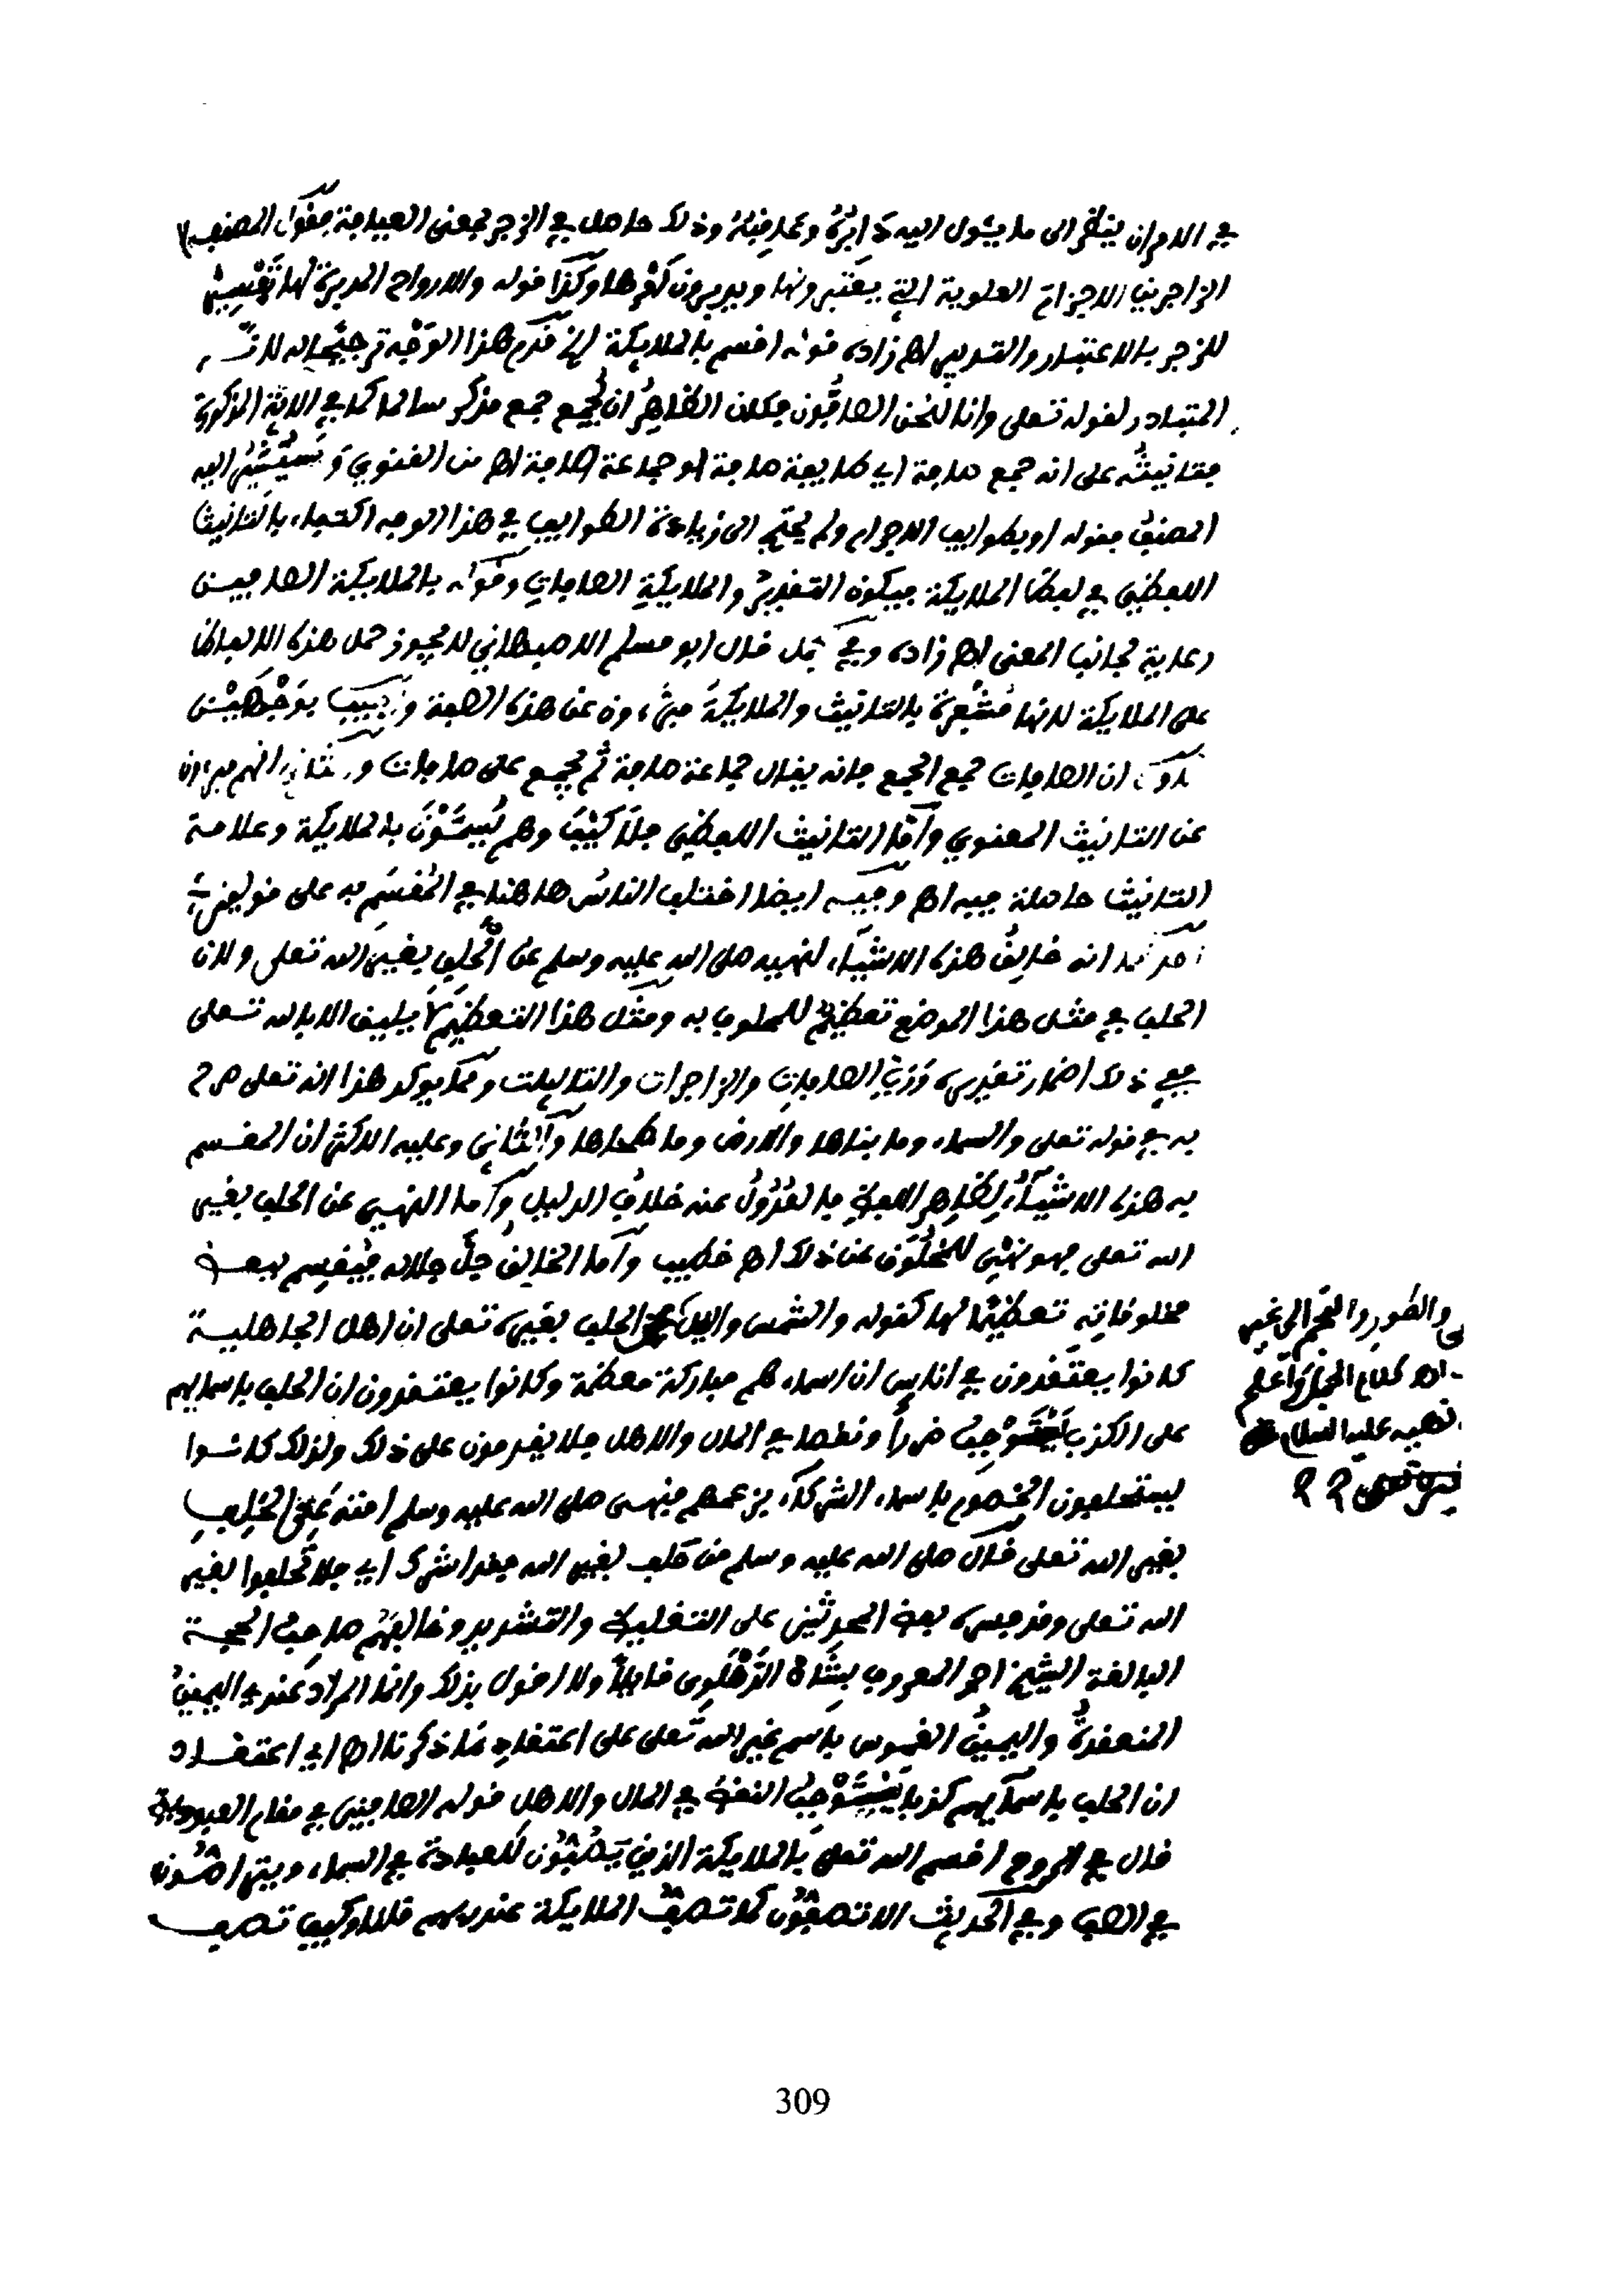 في الامر ان ينظر الى ما يئول اليه دابره وعاقبته وذلك حاصل في الزجر بمعنى العيافة فقول المصنف
الزاجرين الاجرام العلوية التي يعتبرونها ويديرون امرها وكذا قوله والارواح المدبرة لها تفسير
للزجر بالاعتبار والتدبير اهـ زاده قوله اقسم بالملائكة الخ قدم هذا الوجه ترجيحا له لانه
المتبادر لقوله تعلى وانا لنحن الصافون فكان الظاهر ان يجمع جمع مذكر سالما كما في الاية المذكورة
فتانيثه على انه جمع صافة اي طايفة صافة او جماعة صافة اهـ من القنوي وسيشير اليه
المصنف بقوله او بطوايف الاجرام ولم يحتج الى زيادة الطوايف في هذا الوجه اكتفاء بالتانيث
اللفظي في لفظ الملايكة فيكون التقدير والملايكة الصافات وقوله بالملايكة الصافين
رعاية لجانب المعنى اهـ زاده وفي جمل قال ابو مسلم الاصبهاني لا يجوز حمل هذه الالفاظ
على الملايكة لانها مشعرة بالتانيث والملايكة مبرءون عن هذه الصفة واجيب بوجهين
الاول ان الصافات جمع الجمع فانه يقال جماعة صافة ثم يجمع على صافات والثاني انهم مبرءون
عن التانيث المعنوي واما التانيث اللفظي فلا كيف وهم يسمون بالملايكة وعلامة
التانيث حاصلة فيه اهـ وفيه ايضا اختلف الناس هاهنا في المقسم به على قولين
احدهما انه خالق هذه الاشياء لنهيه صلى الله عليه وسلم عن الحلف بغير الله تعلى ولان
الحلف في مثل هذا الموضع تعظيم للمحلوف به ومثل هذا التعظيم لا يليق الا بالله تعلى
ففي ذلك اضمار تقديره ورب الصافات والزاجرات والتاليات ومما يوكد هذا انه تعلى صرح
به في قوله تعلى والسماء وما بناها والارض وما طحاها والثاني وعليه الاكثر ان المقسم
به هذه الاشياء لظاهر اللفظ فالعدول عنه خلاف الدليل واما النهي عن الحلف بغير
الله تعلى فهو نهي للمخلوق عن ذلك اهـ خطيب واما الخالق جل جلاله فيقسم ببعض
مخلوقاته تعظيما لها كقوله والشمس والليل الحلف بغيره تعلى ان اهل الجاهلية
كانوا يعتقدون في اناس ان اسماءهم مباركة معظمة وكانوا يعتقدون ان الحلف باسمايهم
على الكذب يستوجب ضررا ونقصا في المال والاهل فلا يقدمون على ذلك ولذلك كانوا
يستحلفون الخصوم باسماء الشركاء بزعمهم فنهى صلى الله عليه وسلم امته عن الحلف
بغير الله تعلى فقال صلى الله عليه وسلم من حلف بغير الله فقد اشرك اي فلا تحلفوا بغير
الله تعلى وقد فسره بعض المحدثين على التغليظ والتشديد وخالفهم صاحب الحجة
البالغة الشيخ احمد المعروف بشاه الدهلوي قايلا ولا اقول بذلك وانما المراد عندي اليمين
المنعقدة واليمين الغموس باسم غير الله تعلى على اعتقاد ما ذكرنا اهـ اي اعتقاد
ان الحلف باسمايهم كذبا يستوجب النقص في المال والاهل قوله الصافين في مقام العبودية
قال في الروح اقسم الله تعلى بالملايكة الذين يصفون للعبادة في السماء ويتراصون
في الصف وفي الحديث الا تصفون كما تصف الملايكة عند ربهم قلنا وكيف تصف
والطور والنجم الى غير
اهـ كلام الجمل واعلم
نهيه عليه السلام عن
309